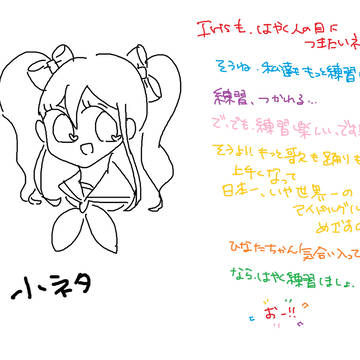 も、はやく人の目に
つまたいネ
そうね、私達もっと練習
練習、つかれる…
で、でも練習楽しい、です!
そうよ!もっと歌も踊りも
上手くなって
日本一、いや世界一の
アイドルグル
めざすの
ひなたちゃん気合い入って
なら、はやく練習しましょ
おー!!
小ネタ